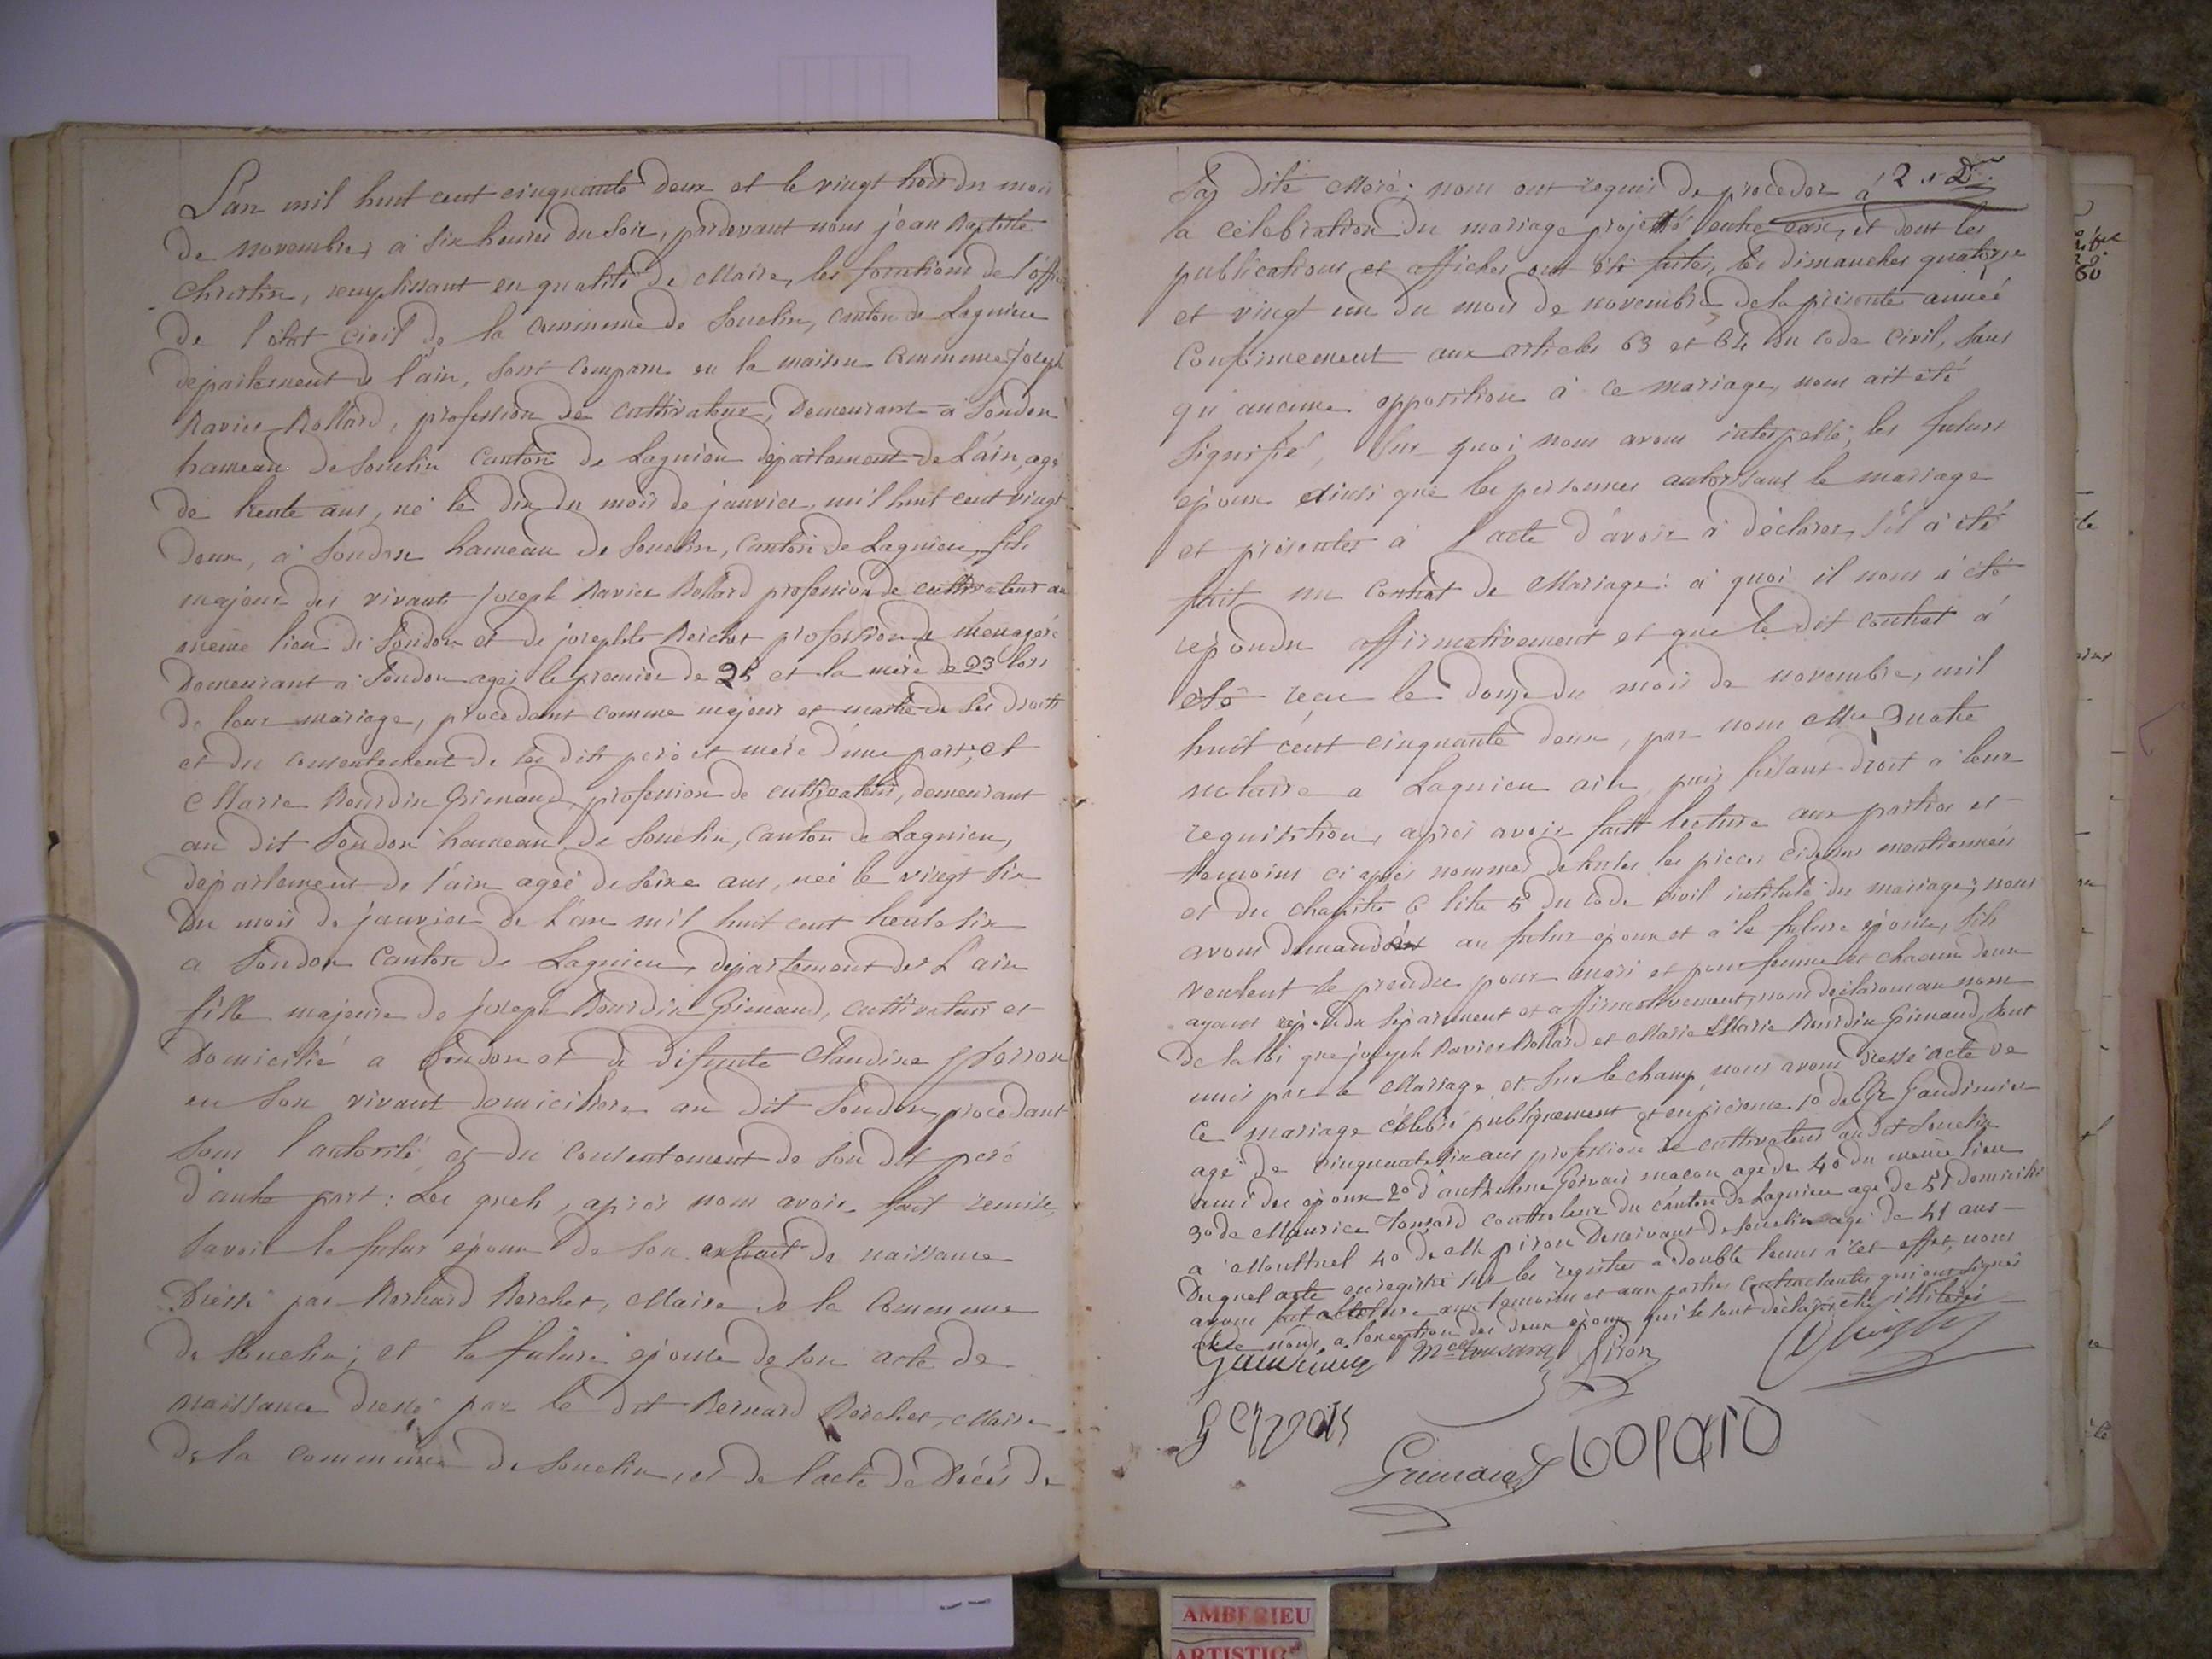 L'an mil huit cent cinquante deux et le vingt trois du mois
de novembre, à six heures du soir, pardevant nous jean Baptiste
Christin, remplissant en qualité de Maire, les fonctions de l'offi
de l'état civil de la commune de Souclin, canton de Lagnieu
département de l'ain, sont comparu en la maison commune joseph
Ravier Bollard, profession de cultivateur, demeurant à Soudon
hameau de Souclin Canton de Lagnieu département de L'ain, agé
de trente ans, né le dix du mois de janvier, mil huit cent vingt
deux, à Soudon hameau de Souclin, Canton de Lagnieu, fils
majeur des vivants joseph Ravier Bollard profession de cultivateur au
même lieu de Soudon et de josephte Berchet profession de ménagère
demeurant à Soudon agés le premier de 25 et la mère de 23 lors
de leur mariage, procédant comme majeur et maitre de ses droits
et du consentement de ses dits père et mère d'une part; et
Marie Bourdin Grimaud, profession de cultivateur, demeurant
au dit Soudon hameau de Souclin, Canton de Lagnieu,
département de l'ain ageé de seize ans, neé le vingt six
du mois de janvier de l'an mil huit cent trente six
a Soudon Canton de Lagnieu, département de L'ain
fille majeure de joseph Bourdin Grimaud, cultivateur et
domicilié a Soudon et de défunte Claudine
en son vivant domiciliée au dit Soudon, procédant
sous l'autorité et du consentement de son dit père
d'autre part: Les quels, après nous avoir fait remise,
savoir le futur époux de son extrait de naissance
dressé par Bernard Berchet, Maire de la Commune
de Souclin; et la future épouse de son acte de
naissance dressé par le dit Bernard Berchet, Maire
de la commune de Souclin, et de l'acte de Décès de
Sa dite Mère; nous ont requis de procéder à
la célébration du mariage projetté entre eux, et dont les
publications et affiches ont été faites, les dimanches quatorze
et vingt un du mois de novembre de la présente année
Conformement aux articles 63 et 64 du Code Civil, sans
qu'aucune opposition à ce mariage, nous ait été
signifié, Sur quoi nous avons interpellé, les futurs
époux ainsi que les personnes autorisant le mariage
et présentes à l'acte d'avoir à déclarer, s'il à été
fait un contrat de Mariage: à quoi il nous à été
répondu affirmativement et que le dit contrat à
été reçu le douze du mois de novembre, mil
huit cent cinquante deux, par nous Mtre Quatre
notaire a Lagnieu ain, puis faisant droit à leur
requisition, après avoir fait lecture aux parties et
témoins ci après nommés de toutes les pièces ci dessus mentionnées
et du chapitre 6 titre 5 du Code Civil intitulé du mariage; nous
avons demandé au futur époux et à la future épouse, s'ils
veulent se prendre pour mari et pour femme et chacun deux
ayant répondu séparément et affirmativement, nous déclarons au nom
De la loi que joseph Ravier Bollard et Marie Bourdin Grimaud, sont
unis par le Mariage, et sur le champ, nous avons dressé acte de
ce mariage célébré publiquement et en présence 1o de Gaudimier
agé de cinquante six ans profession de cultivateur au dit Souclin
ami des époux 2o d'anthelme Gervais maçon agé de 40 du même lieu
3o de Maurice Tousard controleur du canton de Lagnieu agé de 51 domicilié
a Montluel 4o de piron Desservant de Souclin agé de 41 ans
Duquel acte enregistré sur les registres a double tenus à cet effet, nous
avons fait lecture aux témoins et aux parties contractantes qui ont signés
avec nous, a l'exception des deux époux qui se sont déclarés être illitérés
Gaudimier Piron
Gervais
Grimaud bolard
AMBERIEU